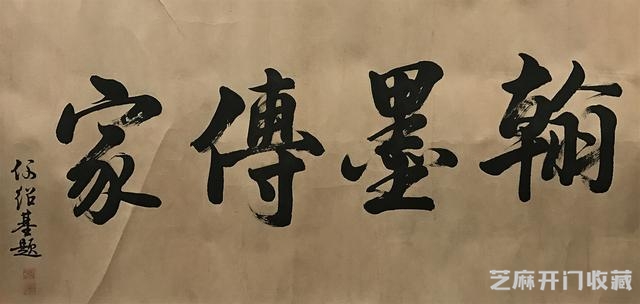 翰墨傳家
何紹基題
芝麻开门收藏